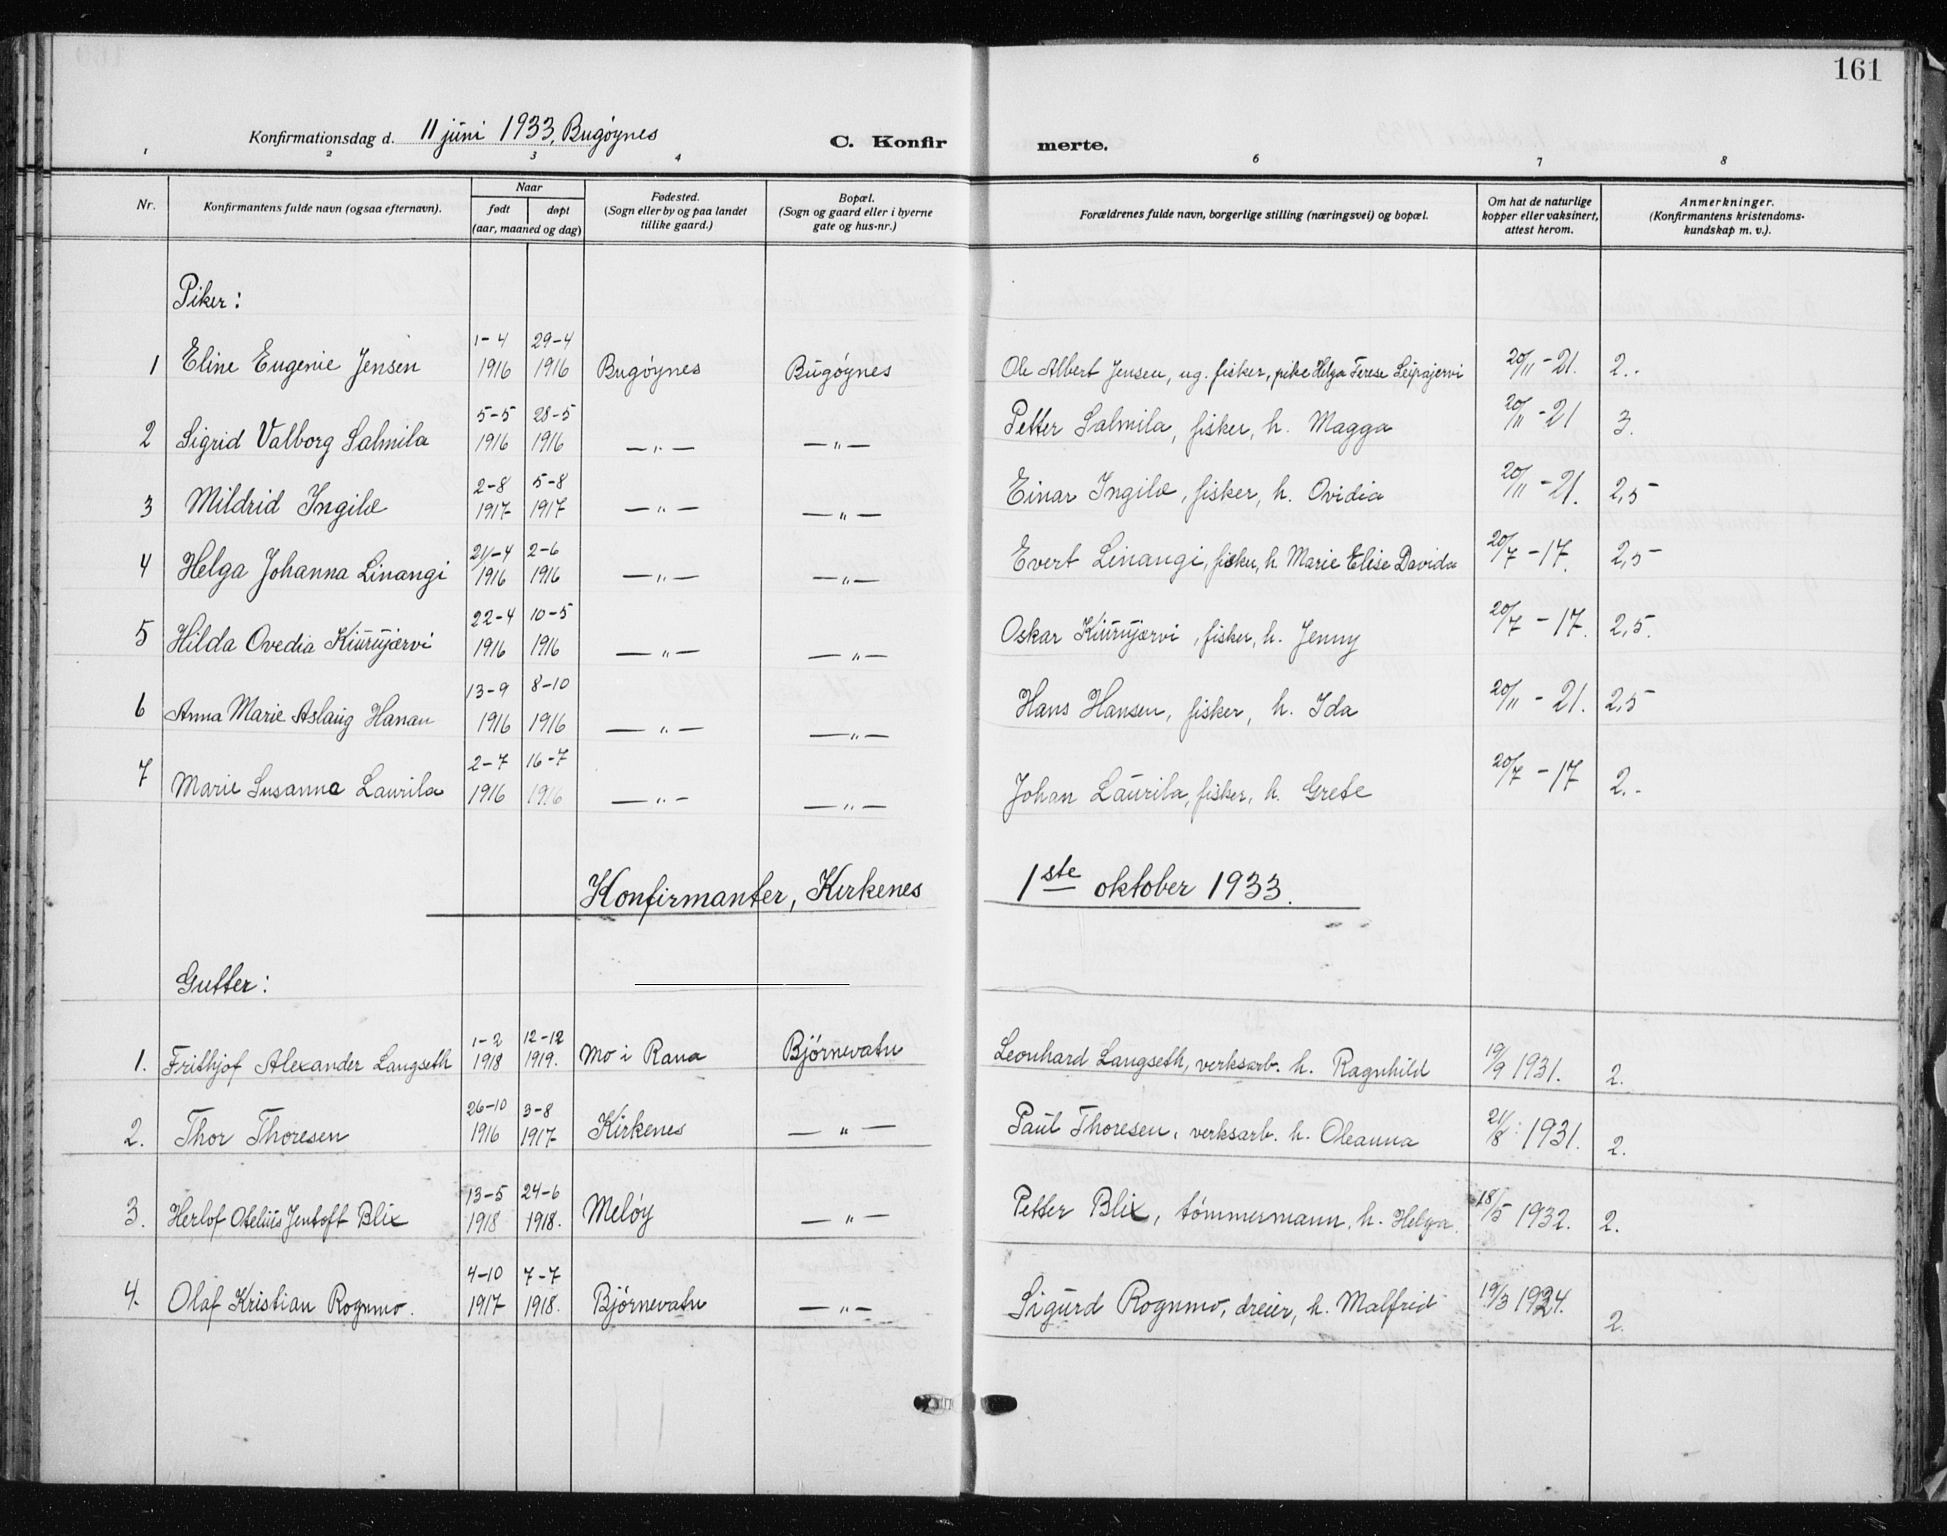 161
Konfirmationsdag d. 11 juni 1933, Bugøynes C. Konfirmerte.
1 2 3 4 6 7 8
Nr. Konfirmantens fulde navn (ogsaa efternavn). Naar født døpt (aar, maaned og dag) Fødested. (Sogn eller by og paa landet tillike gaard.) Bopæl. (Sogn og gaard eller i byerne gate og hus-nr.) Forældrenes fulde navn, borgerlige stilling (næringsvei) og bopæl. Om hat de naturlige kopper eller vaksinert, attest herom. Anmerkninger. (Konfirmantens kristendoms-kundskap m. v.).
Piker:
1 Eline Eugenie Jensen 1-4 1916 29-4 1916 Bugøynes Bugøynes Ole Albert Jensen, ug. fisker, pike Helga Terese 20/11 - 21. 2.-
2 Sigrid Valborg Salmila 5-5 1916 28-5 1916 —"— —"— Petter Salmila, fisker, h. Magga 20/11 - 21 3.
3 Mildrid Ingilæ 2-8 1917 5-8 1917 —"— —"— Einar Ingilæ, fisker, h. Ovidia 20/11 - 21. 2,5
4 Helga Johanna Linangi 21-4 1916 2-6 1916 —"— —"— Evert Linangi, fisker, h Marie Elise Davida 20/7 - 17. 2,5
5 Hilda Ovedia Kiurujærvi 22-4 1916 10-5 1916 —"— —"— Oskar Kiurujærvi, fisker, h. Jenny 20/7 - 17. 2,5.
6 Anna Marie Aslaug Hanau 13-9 1916 8-10 1916 —"— —"— Hans Hansen, fisker, h. Ida 20/11 - 21. 2,5
7 Marie Susanna Laurila 2-7 1916 16-7 1916 —"— —"— Johan Laurila, fisker, h. Grete 20/7 - 17 2.-
Konfirmanter, Kirkenes 1ste oktober 1933.
Gutter:
1. Frithjof Alexander Langseth 1-2 1918 12-12 1919. Mo i Rana Bjørnevatn Leonhard Langseth, verksarb. h. Ragnhild 19/9 1931. 2.
2. Thor Thoresen 26-10 1916 3-8 1917 Kirkenes —"— Paul Thoresen, verksarb. h. Oleanna 21/8 1931. 2.
3. Herlof Otelius Jentoft Blix 13-5 1918 24-6 1918. Meløy —"— Petter Blix, tømmermann, h. Helga 18/5 1932. 2.
4. Olaf Kristian Rognmo. 4-10 1917 7-7 1918. Bjørnevatn —"— Sigurd Rognmo, dreier, h. Malfrid 19/3 2.